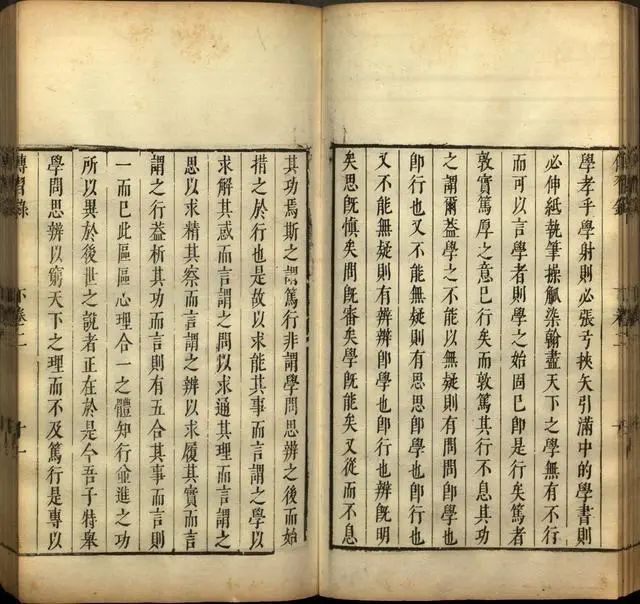 學孝乎學射則必張弓挾矢引滿中的學書則
必伸紙執筆操觚染翰盡天下之學無有不行
而可以言學者則學之始固已即是行矣篤者
敦實篤厚之意已行矣而敦篤其行不息其功
之謂爾葢學之不能以無疑則有問問即學也
即行也又不能無疑則有思思即學也即行也
又不能無疑則有辨辨即學也即行也辨既明
矣思既慎矣問既審矣學既能矣又從而不息
其功焉斯之謂篤行非謂學問思辨之後而始
措之於行也是故以求能其事而言謂之學以
求解其惑而言謂之問以求通其理而言謂之
思以求精其察而言謂之辨以求履其實而言
謂之行葢析其功而言則有五合其事而言則
一而已此區區心理合一之體知行並進之功
所以異於後世之說者正在於是今吾子特舉
學問思辨以窮天下之理而不及篤行是專以
傳習錄